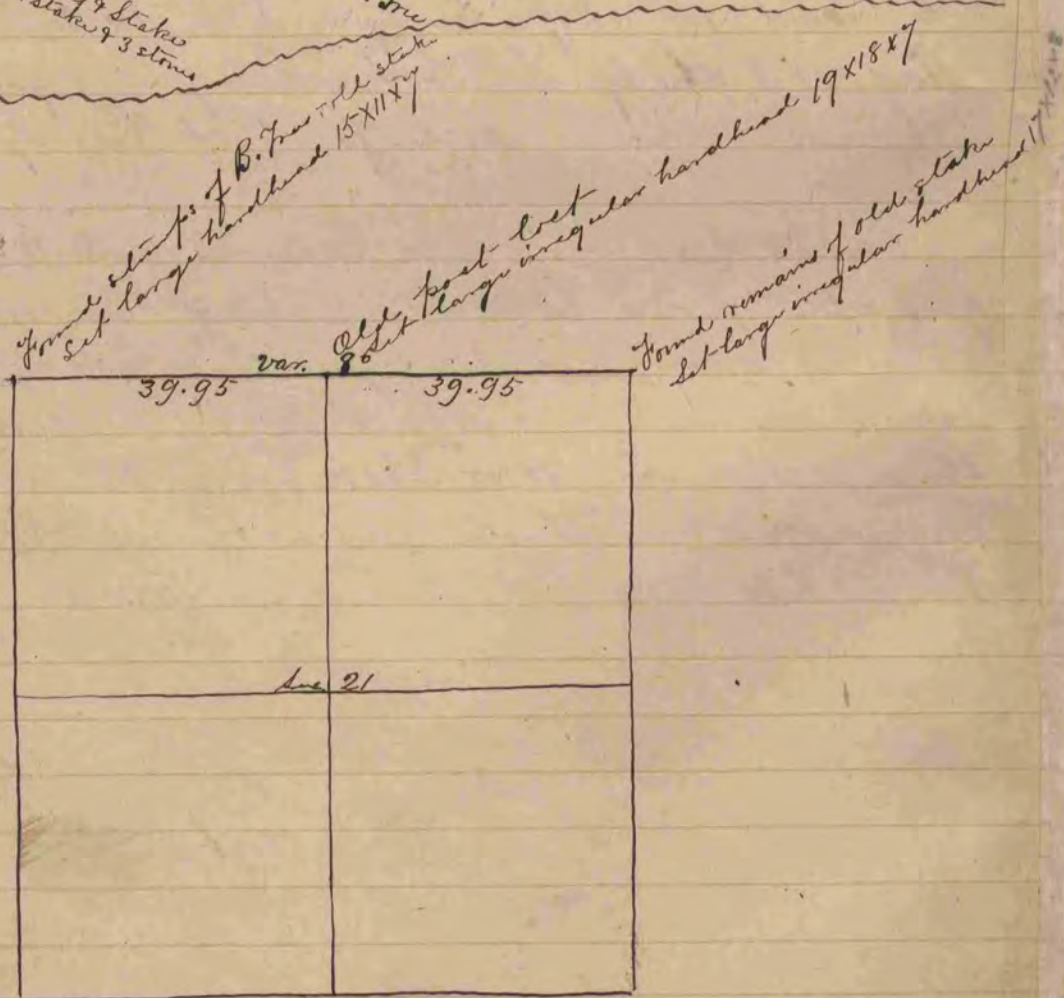 & Stake
stake & 3 stones
Found stumps of B. Trees & old stake
Set large hardhead 15X11X7
Old post lost
Set large irregular hardhead 19X18X7
Found remains of old stake
Set large irregular hardhead 17X
var. 8°
39.95
39.95
Sec 21